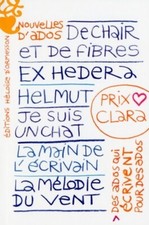 NOUVELLES
D'ADOS
DE CHAIR
ET DE FIBRES
EX HEDERA
HELMUT
PRIX
CLARA
JE SUIS
UN CHAT
LA MAIN DE
L'ÉCRIVAIN
LA MÉLODIE
DU VENT
DES ADOS QUI
ÉCRIVENT
POUR DES ADOS
ÉDITIONS HÉLOÏSE D'ORMESSON